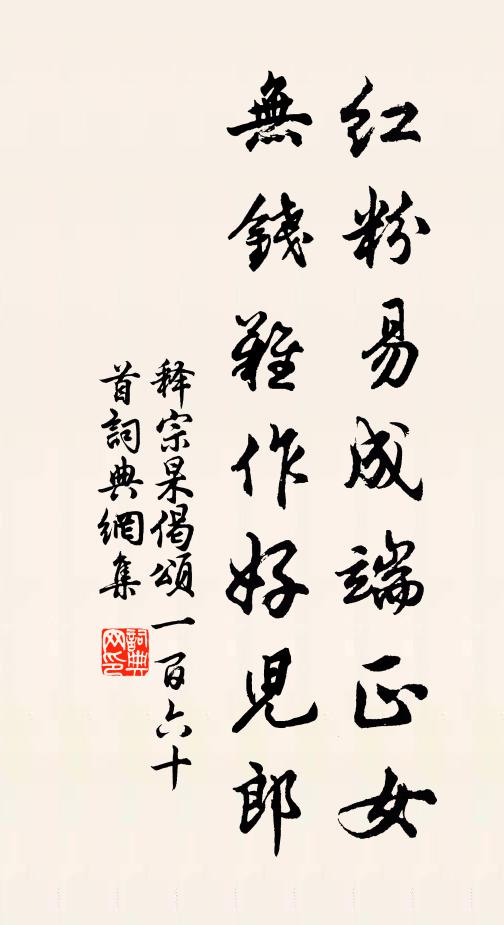 红粉易成端正女
無錢難作好児郎
释宗杲偈頌一百六十
首詞典網集
詞典
网印